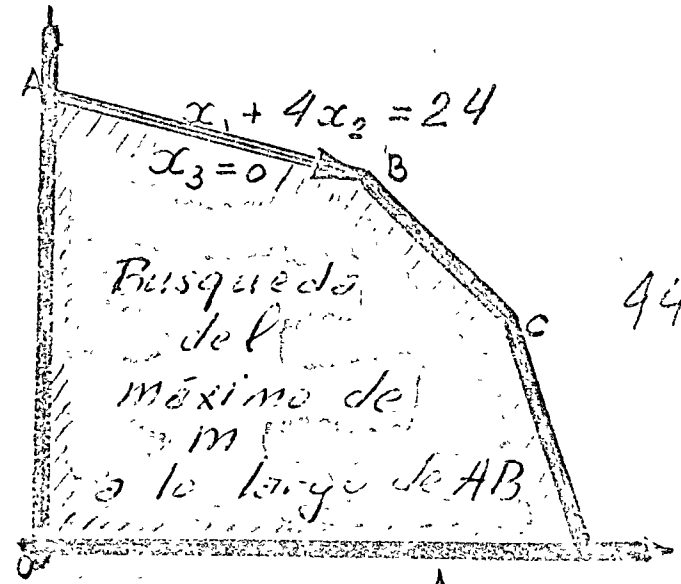 A
x₁ + 4x₂ = 24
x₃ = 0
B
Busqueda
del
máximo de
m
a lo largo de AB
C
44
O